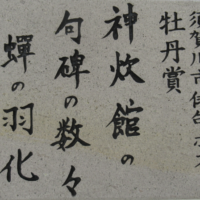 須賀川市俳句ポスト
牡丹賞
神炊館の
句碑の数々
蟬の羽化